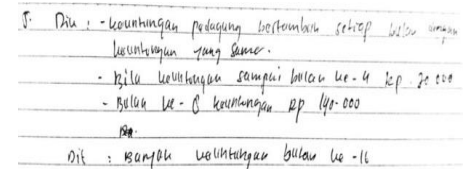 5. Dik : - keuntungan pedagang bertambah setiap bulan dengan
keuntungan yang sama.
- Bila keuntungan sampai bulan ke-4 Rp. 30 000
- Bulan ke-8 keuntungan Rp 140.000
Dit : Banyak keuntungan bulan ke-16